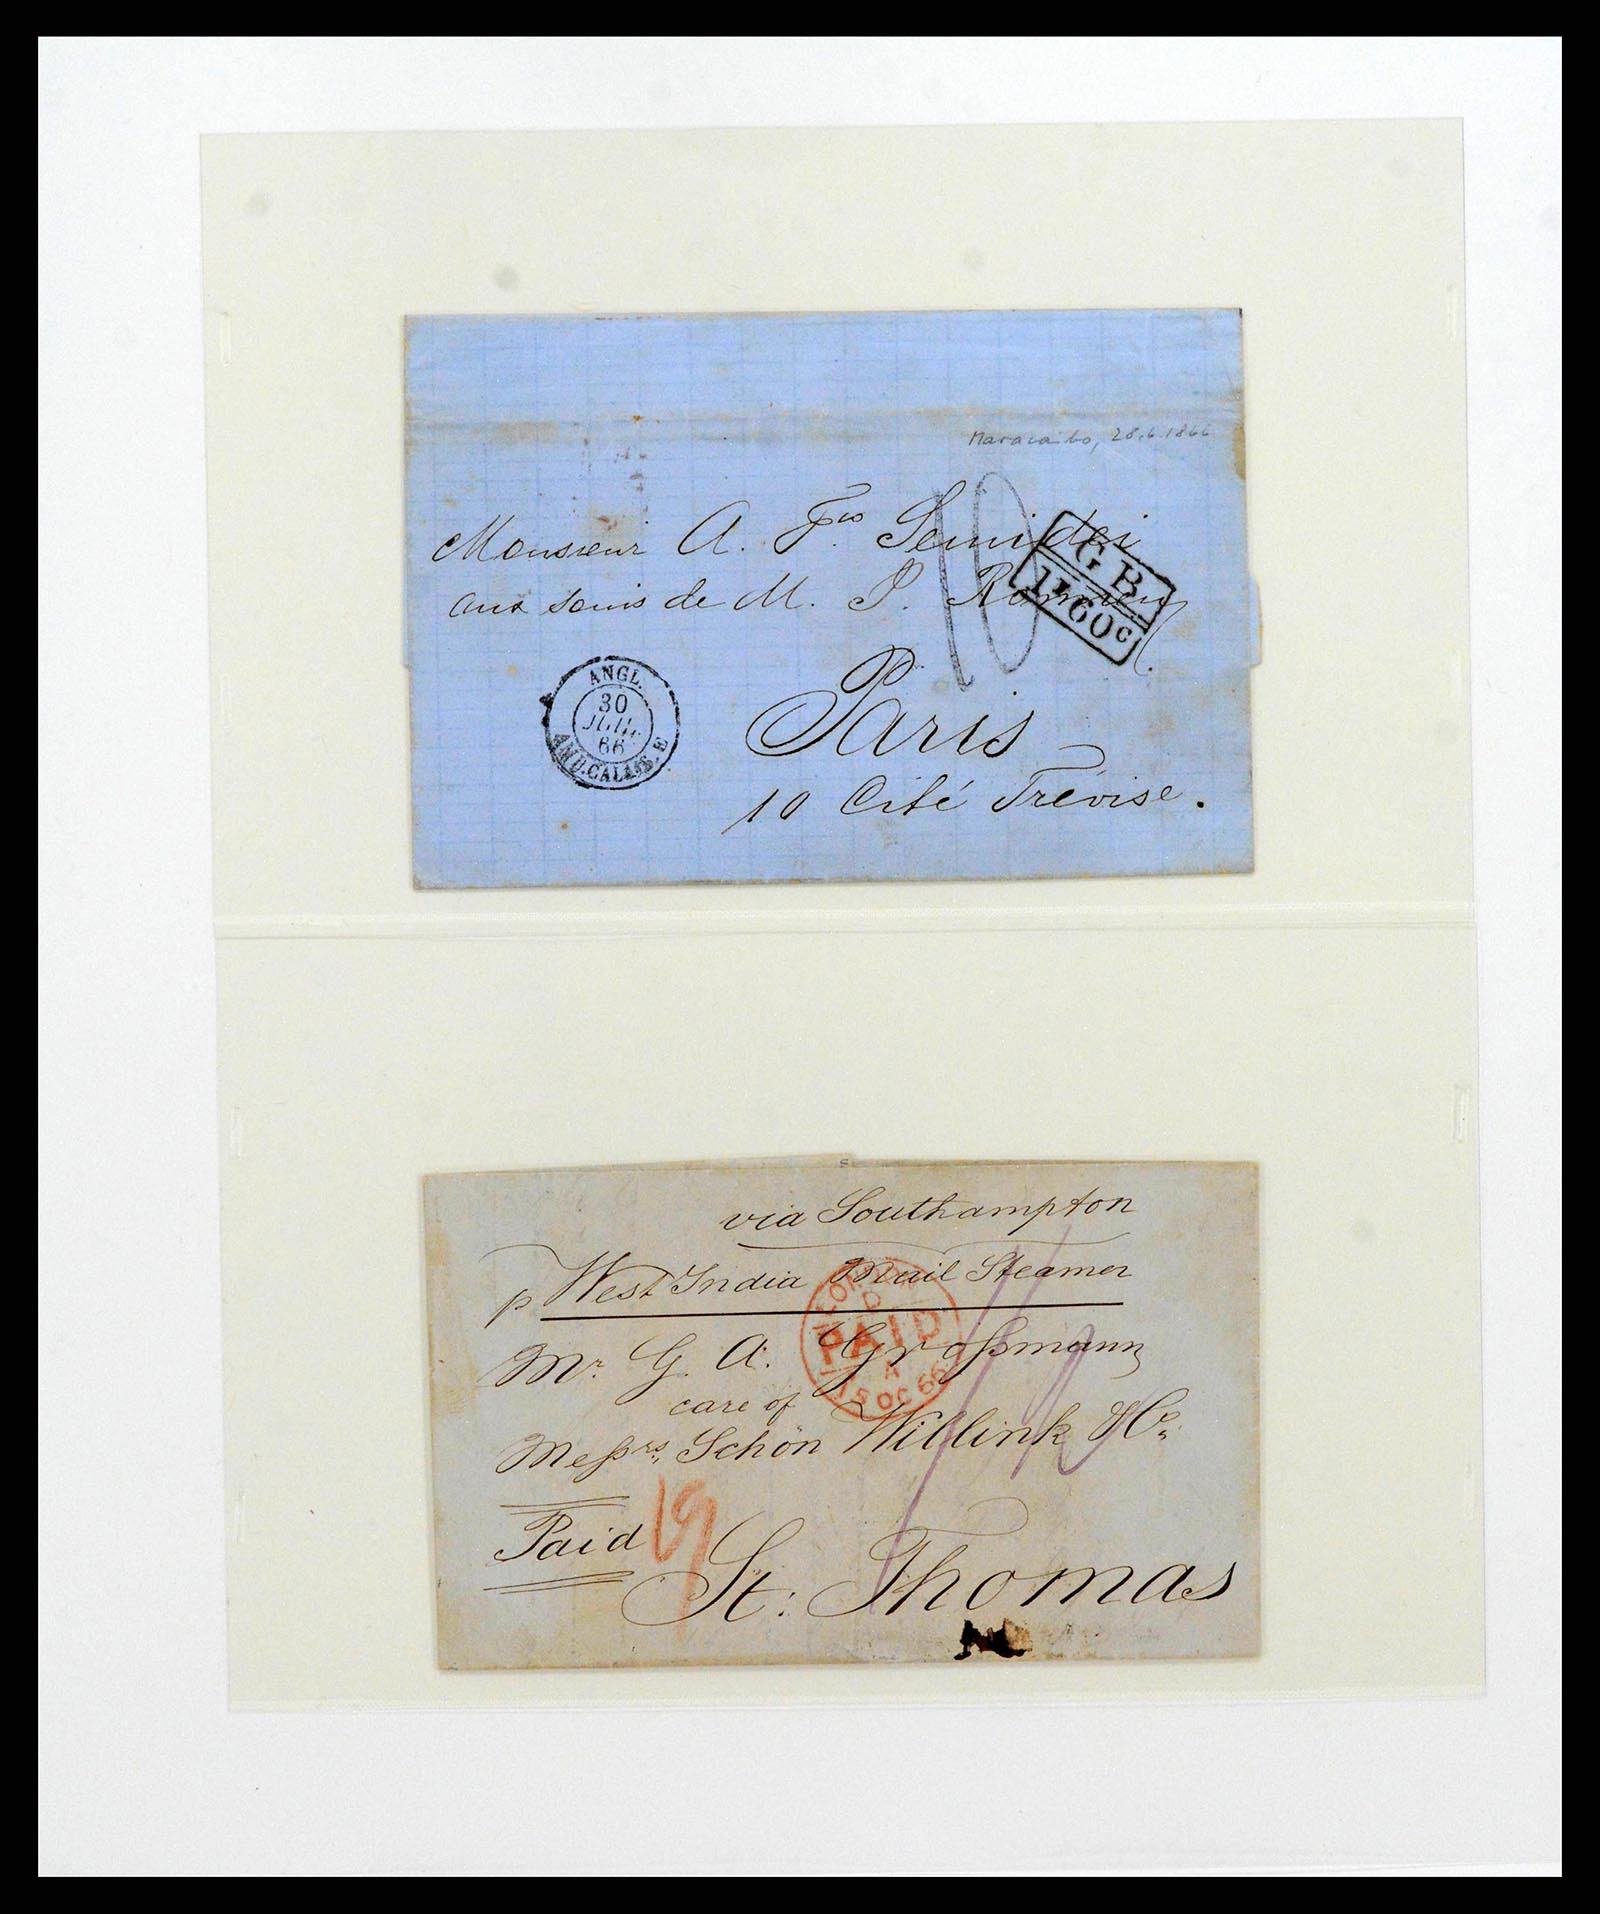 Maracaibo, 28.6.1866
Monsieur A. Fco Semidei
aux soins de M. P.
10
G B
1F60c
Paris
10 Cité Trévise.
ANGL.
30
JUIL
66
AMB.CALAIS.E
via Southampton
p West India Mail Steamer
LONDON
D
PAID
A
15 OC 66
Mr. G. A. Großmann
care of
Meßrs. Schön Willink & Co.
Paid
St: Thomas